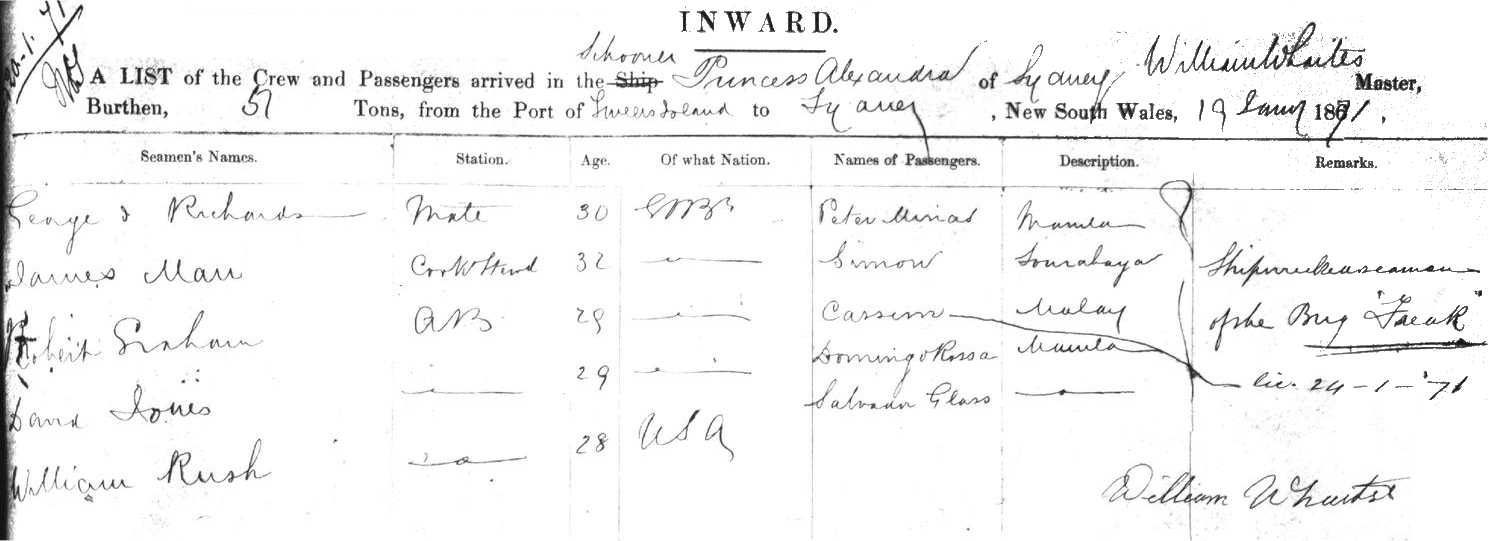 INWARD.
Schooner
A LIST of the Crew and Passengers arrived in the Ship Princess Alexandra of Sydney William Whaites Master,
Burthen, 57 Tons, from the Port of Sweers Island to Sydney, New South Wales, 19 Jany 1871.
Seamen's Names. Station. Age. Of what Nation. Names of Passengers. Description. Remarks.
George J Richards Mate 30 Peter Manila
James Mar Cook & Stwd 32 Simon Sourabaya Shipwrecked seamen
Robert Graham AB 29 Cassim Malay of the Brig "Freak"
David Jones 29 Domingo Rossa Manila lic. 24-1-'71
Salvador Glass
William Rush 28 USA
William